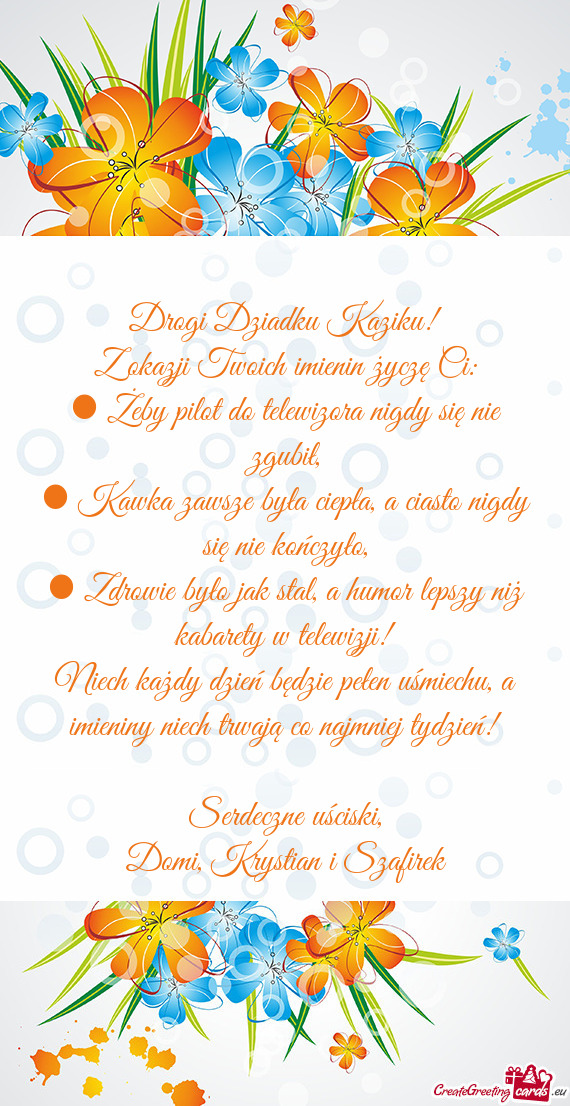 Drogi Dziadku Kaziku!
Z okazji Twoich imienin życzę Ci:
● Żeby pilot do telewizora nigdy się nie
zgubił,
● Kawka zawsze była ciepła, a ciasto nigdy
się nie kończyło,
● Zdrowie było jak stal, a humor lepszy niż
kabarety w telewizji!
Niech każdy dzień będzie pełen uśmiechu, a
imieniny niech trwają co najmniej tydzień!
Serdeczne uściski,
Domi, Krystian i Szafirek
CreateGreeting cards .eu